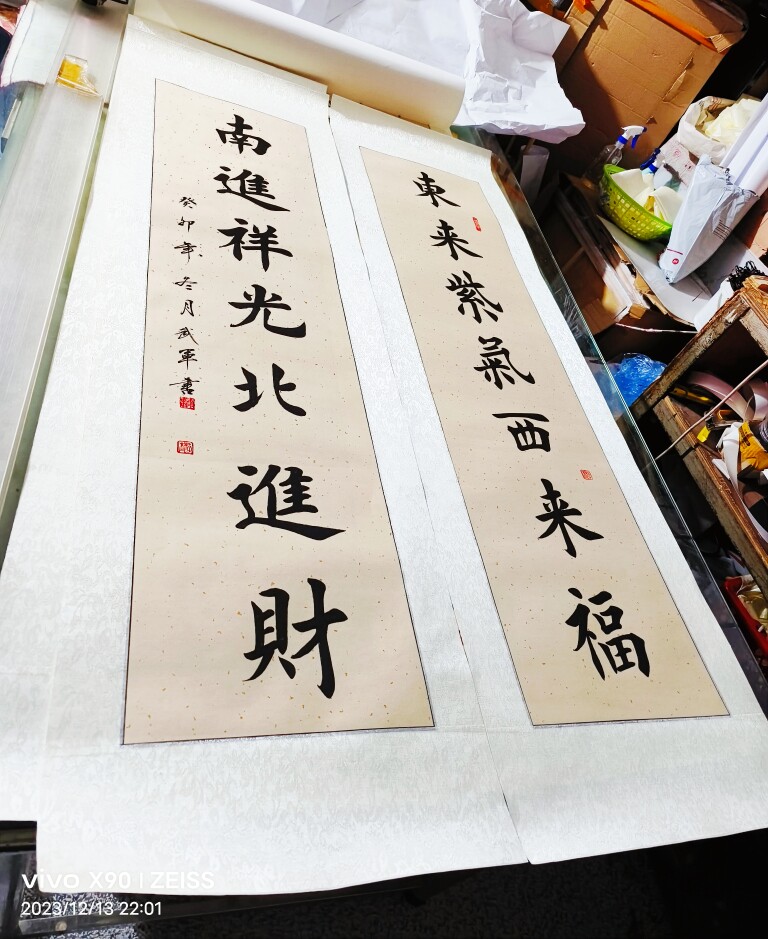 東来紫氣西来福
南進祥光北進財
癸卯年冬月武軍書
vivo X90 | ZEISS
2023/12/13 22:01